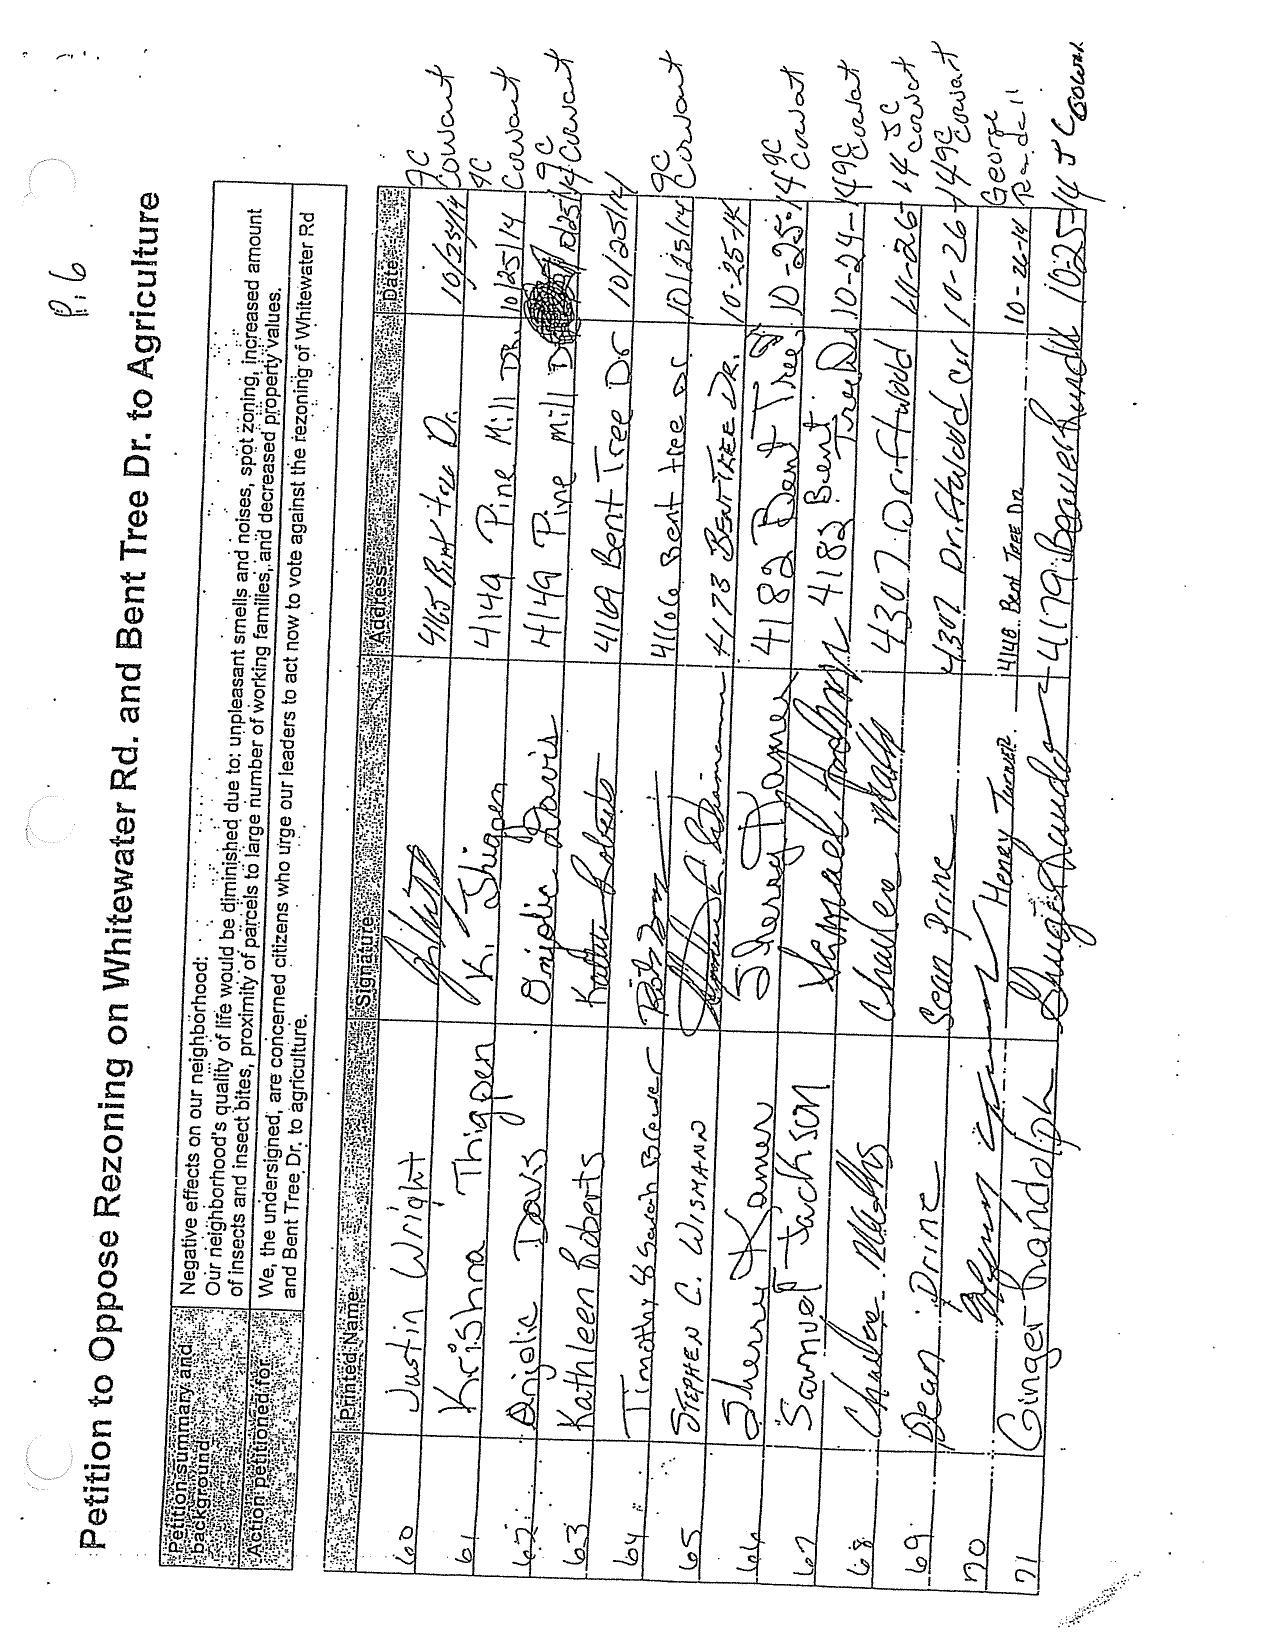 P. 6
Petition to Oppose Rezoning on Whitewater Rd. and Bent Tree Dr. to Agriculture
Petition summary and background
Negative effects on our neighborhood:
Our neighborhood's quality of life would be diminished due to: unpleasant smells and noises, spot zoning, increased amount
of insects and insect bites, proximity of parcels to large number of working families, and decreased property values.
Action petitioned for
We, the undersigned, are concerned citizens who urge our leaders to act now to vote against the rezoning of Whitewater Rd
and Bent Tree Dr. to agriculture.
Printed Name Signature Address Date
60 Justin Wright 4165 Bent tree Dr. 10/25/14 9C Cowart
61 Krishna Thigpen K. Thigpen 4149 Pine Mill DR. 10/25/14 9C Cowart
62 Anjolic Davis Anjolic Davis 4149 Pine Mill Dr 10/25/14 9C Cowart
63 Kathleen Roberts Kathleen Roberts 4169 Bent Tree Dr 10/25/14
64 Timothy & Sarah Brewer 4166 Bent tree Dr. 10/25/14 9C Cowart
65 STEPHEN C. WISMANN 4173 BENT TREE DR. 10-25-14
66 Sherry Kamer Sherry 4182 Bent Tree 10-25-14 9C Cowart
67 Samuel Jackson Samuel Jackson 4182 Bent Tree Dr 10-24-14 9C Cowart
68 Charles Charles 4307 Driftwood 10-26-14 JC Cowart
69 Dean Prine Sean Prine 4307 Driftwood Cir 10-26-14 9C Cowart
70 HENRY TURNER 4148 Bent TREE DR 10-26-14 George Randall
71 Ginger Randolph Ginger Randolph 4179 Beaver 10-25-14 JC Cowart